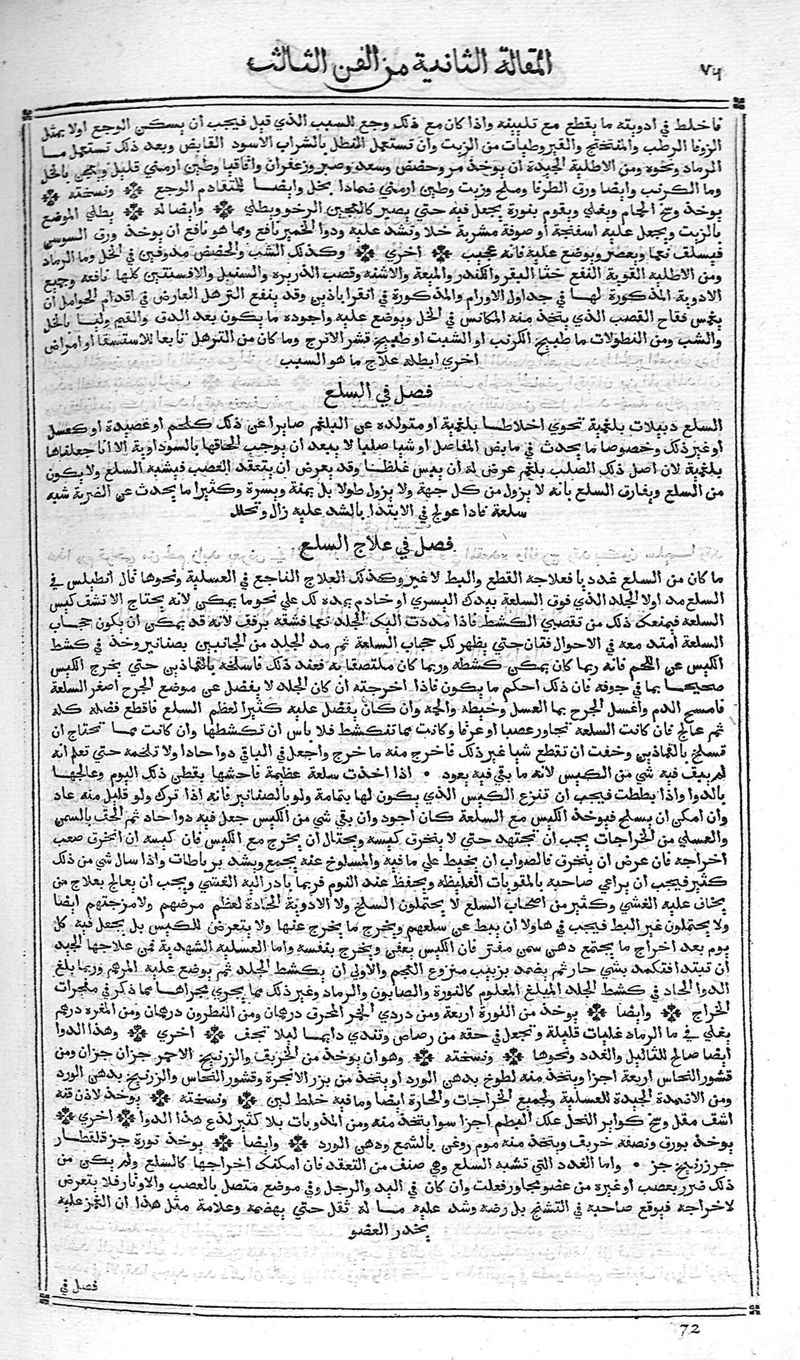 ٧٦
المقالة الثانية من الفن الثالث
فاخلط في ادويته ما يقطع مع تليينه واذا كان مع ذلك وجع للسبب الذي قيل فيجب ان يسكن الوجع اولا بمثل
الزوفا الرطب والمنفتح والقيروطيات من الزيت وان تستعمل المنطل بالشراب الاسود القابض وبعد ذلك تستعمل مـا
الرماد ونحوه ومن الاطلية الجيدة ان يوخذ مر وحضض وسعد وصبر وزعفران واقاقيا وطين ارمني قليل ويعجن بالخل
وما الكرنب وايضا ورق الطرفا وملح وزيت وطين ارمني ضمادا بخل وايضـا للتقادم الوجع ونسخته
يوخذ وسخ الحمام ويغلي ويقوم بنورة يجعل فيه حتي يصير كالعجين الرخو ويطلي وايضا له يطلي الموضع
بالزيت ويجعل عليه اسفنجة او صوفة مشربة خلا وتشد عليه ودوا الخمير نافع ومما هو نافع ان يوخذ ورق السوسن
فيسلف نعما ويعصر ويوضع عليه فانه عجيب اخري وكذلك الشب والحضض مدوفين في الخل وما الرماد
ومن الاطلية القوية النفع خثا البقر والكندر والميعة والاشنه وقصب الذريره والسنبل والافسنتين كلها نافعه وجميع
الادوية المذكورة لهـا في جداول الاورام والمذكورة في انقراباذين وقد ينفع الترهل العارض في اقدام الحوامل ان
يغمس فقاح القصب الذي يتخذ منه المكانس في الخل ويوضع عليه واجوده ما يكون بعد الدق والقيم وليا بالخل
والشب ومن النطولات ما طبيخ الكرنب او الشبت او طبيخ قشر الاترج وما كان من الترهل تابعا للاستسقا او امراض
اخري ابطله علاج ما هو السبب
فصل في السلع
السلع دبيلات بلغمية تحوي اخلاطـا بلغمية او متولده عن البلغم صايرا عن ذلك كلحم او عصيدة او كعسل
او غير ذلك وخصوصا ما يحدث في مابض المفاصل او شيا صلبا لا يبعد ان يوجب الحاقها بالسوداوية الا انا جعلناها
بلغمية لان اصل ذلك الصلب بلغم عرض له ان يبس غلظـا وقد يعرض ان يتعقد العصب فيشبه السلع ولا يكون
من السلع ويفارق السلع بانه لا يزول من كل جهة ولا يزول طولا بل يمنة ويسرة وكثيرا ما يحدث عن الضربة شبه
سلعة فاذا عولج في الابتدا بالشد عليه زال وتحلل
فصل في علاج السلع
ما كان من السلع غدديا فعلاجه القطع والبط لا غير وكذلك العلاج الناجع في العسلية ونحوها قال انطيلس في
السلع مد اولا الجلد الذي فوق السلعة بيدك اليسري او خادم يمده لك علي نحو ما يمكن لانه يحتاج الا تشف كيس
السلعة فيمنعك ذلك من تقصي الكشط فاذا مددت اليك الجلد نعما فشقه برفف لانه قد يمكن ان يكون حجاب
السلعة امتد معه في الاحوال فتان حتي يظهر لك حجاب السلعة ثم مد الجلد من الجانبين بصنانير وخذ في كشط
الكيس عن اللحم فانه ربما كان يمكن كشطه وربما كان ملتصقا به فعند ذلك فاسلخه بالقماذين حتي يخرج الكيس
صحيحـا بما في جوفه فان ذلك احكم ما يكون فاذا اخرجته ان كان الجلد لا يفضل عن موضع الجرح اصغر السلعة
فامسح الدم واغسل الجرح بما العسل وخيطه والحمه وان كـان يفضل عليه كثيرا لعظم السلع فاقطع فضله كله
ثم عالج فان كانت السلعة تجاور عصبا او عرفا وكانت مما تنكشط فلا باس ان تكشطها وان كانت ممـا تحتاج ان
تسلخ بالقماذين وخفت ان تقطع شيا غير ذلك فاخرج منه ما خرج واجعل في الباقي دوا حادا ولا تلحمه حتي تعلم انه
لم يبف فيه شي من الكيس لانه ما بقي فيه يعود • اذا اخذت سلعة عظيمة فاحشها بقطن ذلك اليوم وعالجها
بالدوا واذا بططت فيجب ان تنزع الكيس الذي يكون لها بتمامة ولو بالصنانير فانه اذا ترك ولو قليل منه عاد
وان امكن ان يسلخ فيوخذ الكيس مع السلعة كان اجود وان بقي شي من الكيس جعل فيه دوا حاد ثم الحف بالسمن
والعسلي من الخراجات يجب ان تجتهد حتي لا ينخرق كيسه ويحتال ان يخرج مع الكيس فان كيسه ان انخرق صعب
اخراجه فان عرض ان ينخرق فالصواب ان يخيط علي ما فيه والمسلوخ عنه يجمع ويشد برباطات واذا سال شي من ذلك
كثير فيجب ان يراعي صاحبه بالمقويات الغليظه ويحفظ عند النوم فربما بادر اليه الغشي ويجب ان يعالج بعلاج من
يخاف عليه الغشي وكثير من اصحاب السلع لا يحتملون السلخ ولا الادوية الحادة لعظم مرضهم ولامزجتهم ايضا
ولا يحتملون غير البط فيجب في هاولا ان يبط عن سلعهم ويخرج ما يخرج عنها ولا يتعرض للكيس بل يجعل فيه كل
يوم بعد اخراج ما يجتمع دهن سمن مفتر فان الكيس يعفن ويخرج بنفسه واما العسلية الشهدية فمن علاجها الجيد
ان تبتدا فتكمد بشي حار ثم يضمد بزبيب منزوع العجم والاولي ان يكشط الجلد ثم يوضع عليه المرهم وربما بلغ
الدوا الحاد في كشط الجلد المبلغ المعلوم كالنورة والصابون والرماد وغير ذلك مما يجري مجراهـا مما ذكر في مفجرات
الخراج وايضـا يوخذ من النورة اربعة ومن دردي الخمر المحرق درهمان ومن النطرون درهمان ومن المغره درهم
يغلي في ما الرماد غليات قليلة وتجعل في حقه من رصاص وتندي دايمـا ليلا تجف اخري وهذا الدوا
ايضا صالح للثاليل والغدد ونحوها ونسخته وهو ان يوخذ من الخريف والزرنيخ الاحمر جزان جزان ومن
قشور النحاس اربعة اجزا ويتخذ منه لطوخ بدهن الورد او يتخذ من بزر الانجرة وقشور النحاس والزرنيخ بدهن الورد
ومن الاضمدة الجيدة للعسلية ولجميع الخراجات والحارة ايضا وما فيه خلط لين ونسخته يوخذ لاذن قنه
اشف مقل وسخ كواير النحل علك البطم اجزا سوا يتخذ منه ومن المذوبات بلا كثير لذع هذا الدوا اخري
يوخذ بورق ونصفه خريف ويتخذ منه موم روغن بالشمع ودهن الورد وايضـا يوخذ نورة جز قلقطار
جز زرنيخ جز • واما الغدد التي تشبه السلع وهي صنف من التعقد فان امكنك اخراجها كالسلع ولم يكن من
ذلك ضرر بعصب او غيره من عضو مجاور فعلت وان كان في اليد والرجل وفي موضع متصل بالعصب والاوتار فلا يتعرض
لاخراجه فيوقع صاحبه في التشنج بل رضه وشد عليه مـا له ثقل حتي يهضمه وعلامة مثل هذا ان الغمز عليه
يخدر العضو
فصل في
72